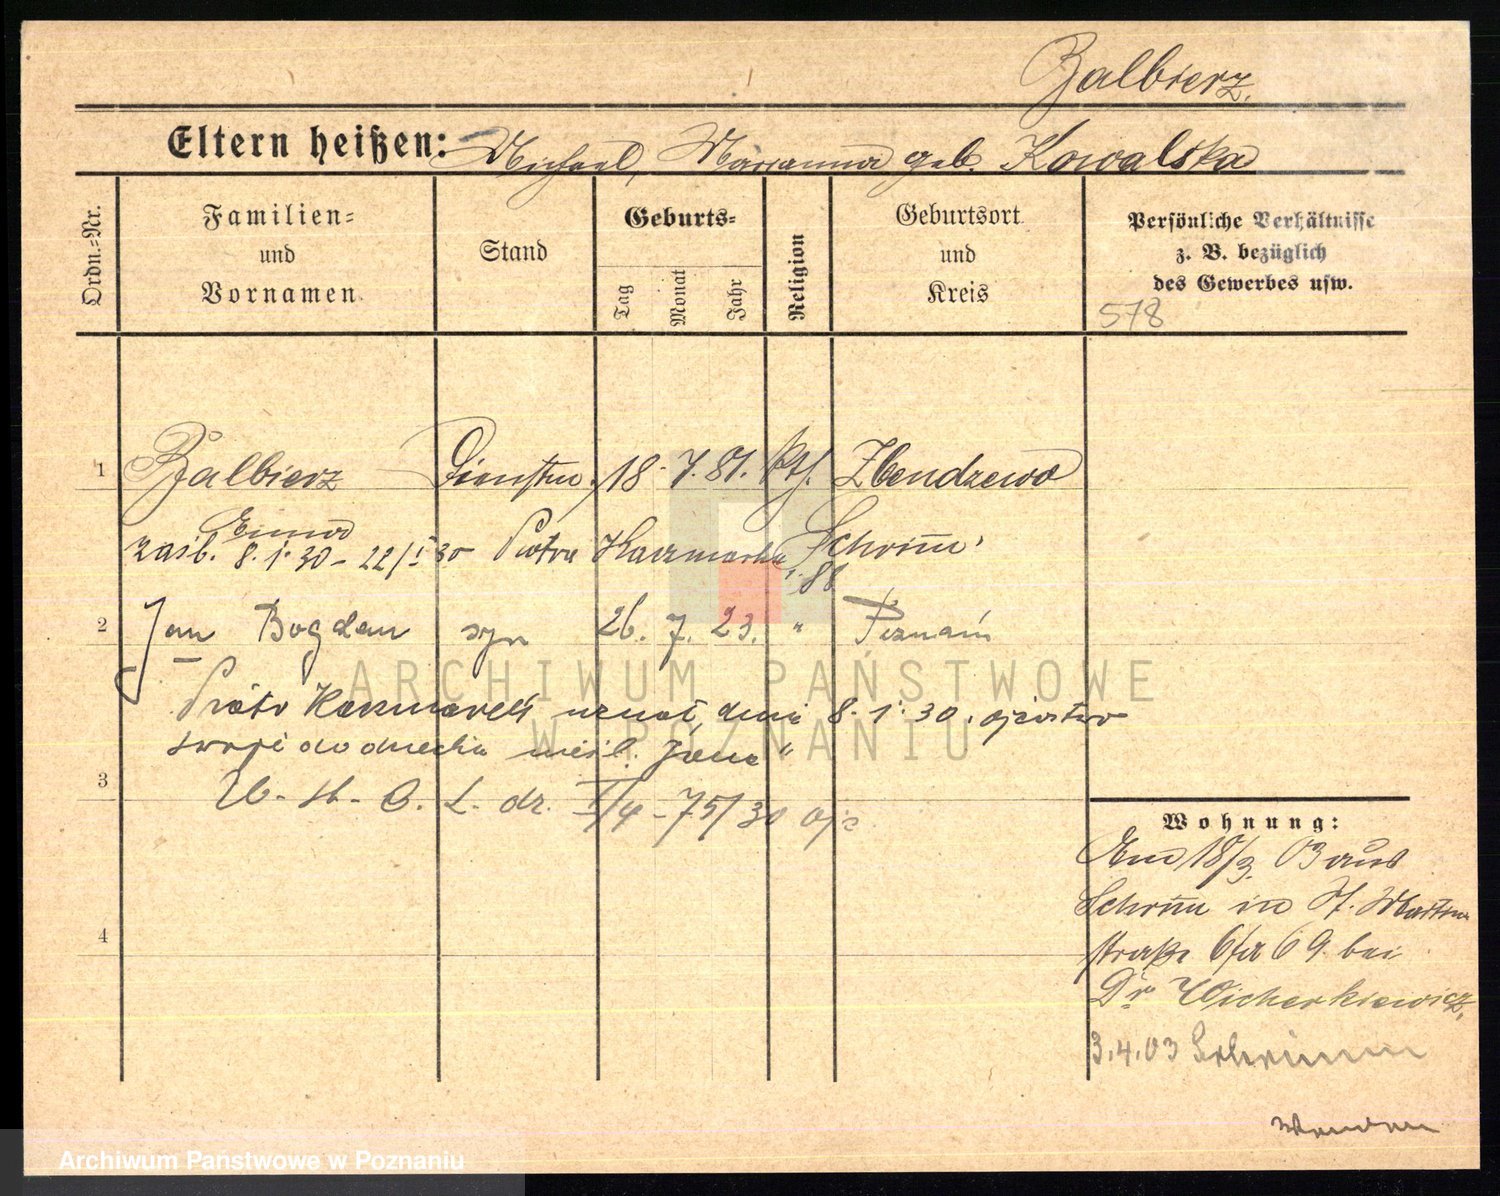 Balbierz.
Eltern heißen: Michael, Marianna geb. Kowalska
Ordn.-Nr.
Familien- und Vornamen
Stand
Geburts-
Tag Monat Jahr
Religion
Geburtsort und Kreis
Persönliche Verhältnisse
z. B. bezüglich
des Gewerbes usw.
578
1 Balbierz Dienstm. 18. 7. 81. kth. Zbendzewo
Schrimm
zaśl. 8. 1. 30 - 22/I 30 Piotra Kaczmarka
88
2 Jan Bogdan syn 26. 7. 23. " Poznań
Piotr Kaczmarek uznał dnia 8. 1. 30. ojcostwo
swoje do dziecka nieśl. Jana"
3
75/30
4
Wohnung:
Am 18/3. 03 aus
Schrimm in St. Martin
straße 6/a 69. bei
Dr. Wicherkiewicz.
3.4.03 Schrimm
Wenden
ARCHIWUM PAŃSTWOWE
W POZNANIU
Archiwum Państwowe w Poznaniu